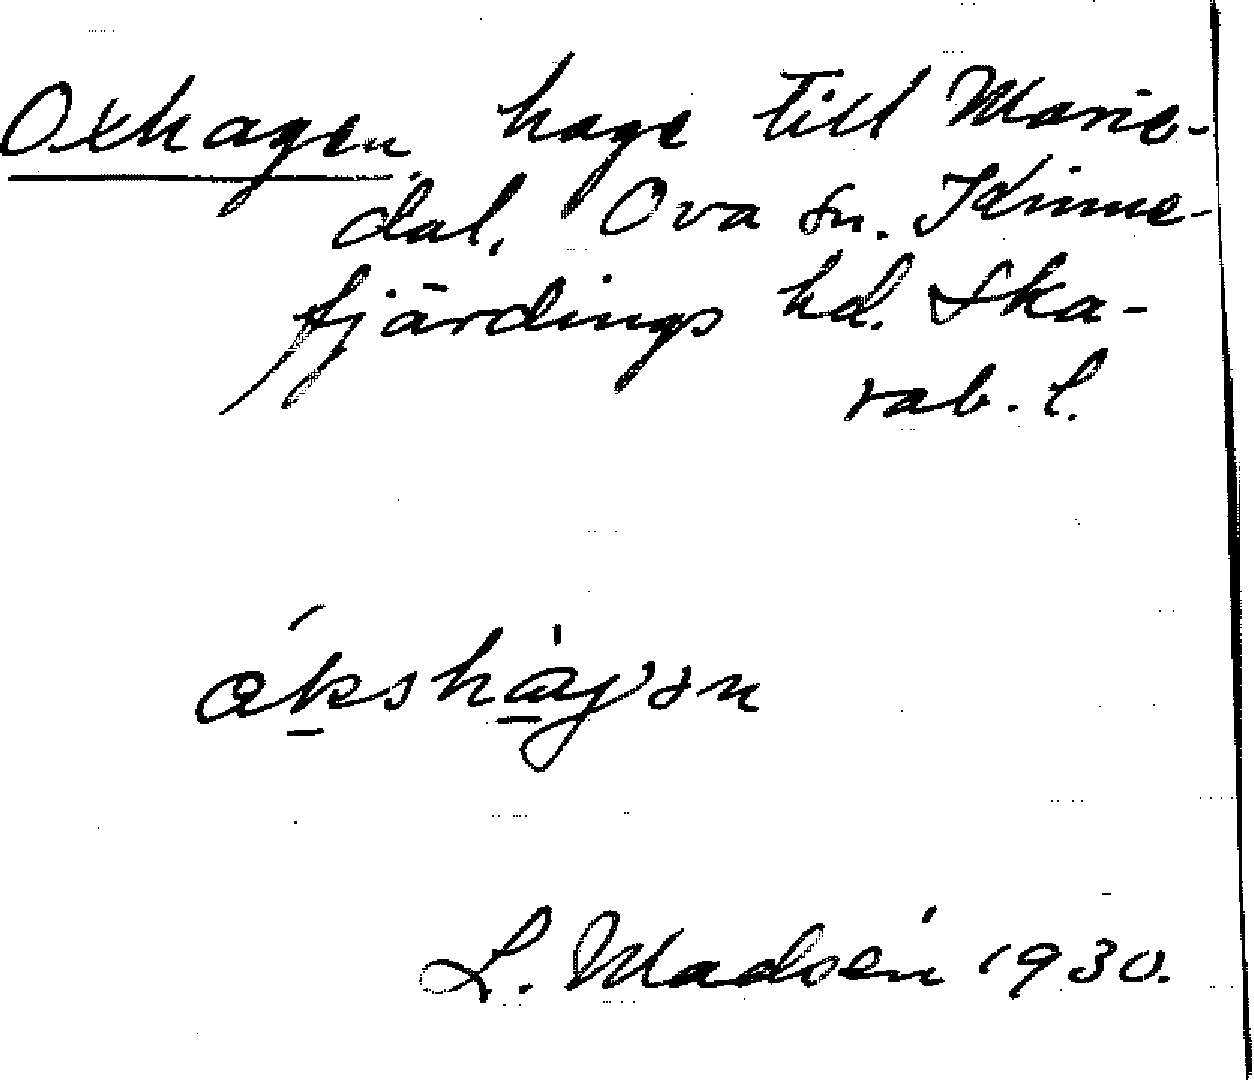 Oxhagen, hage till Marie-
dal, Ova sn. Kinne-
fjärdings hd. Ska-
rab. l.
L. Madsén 1930.